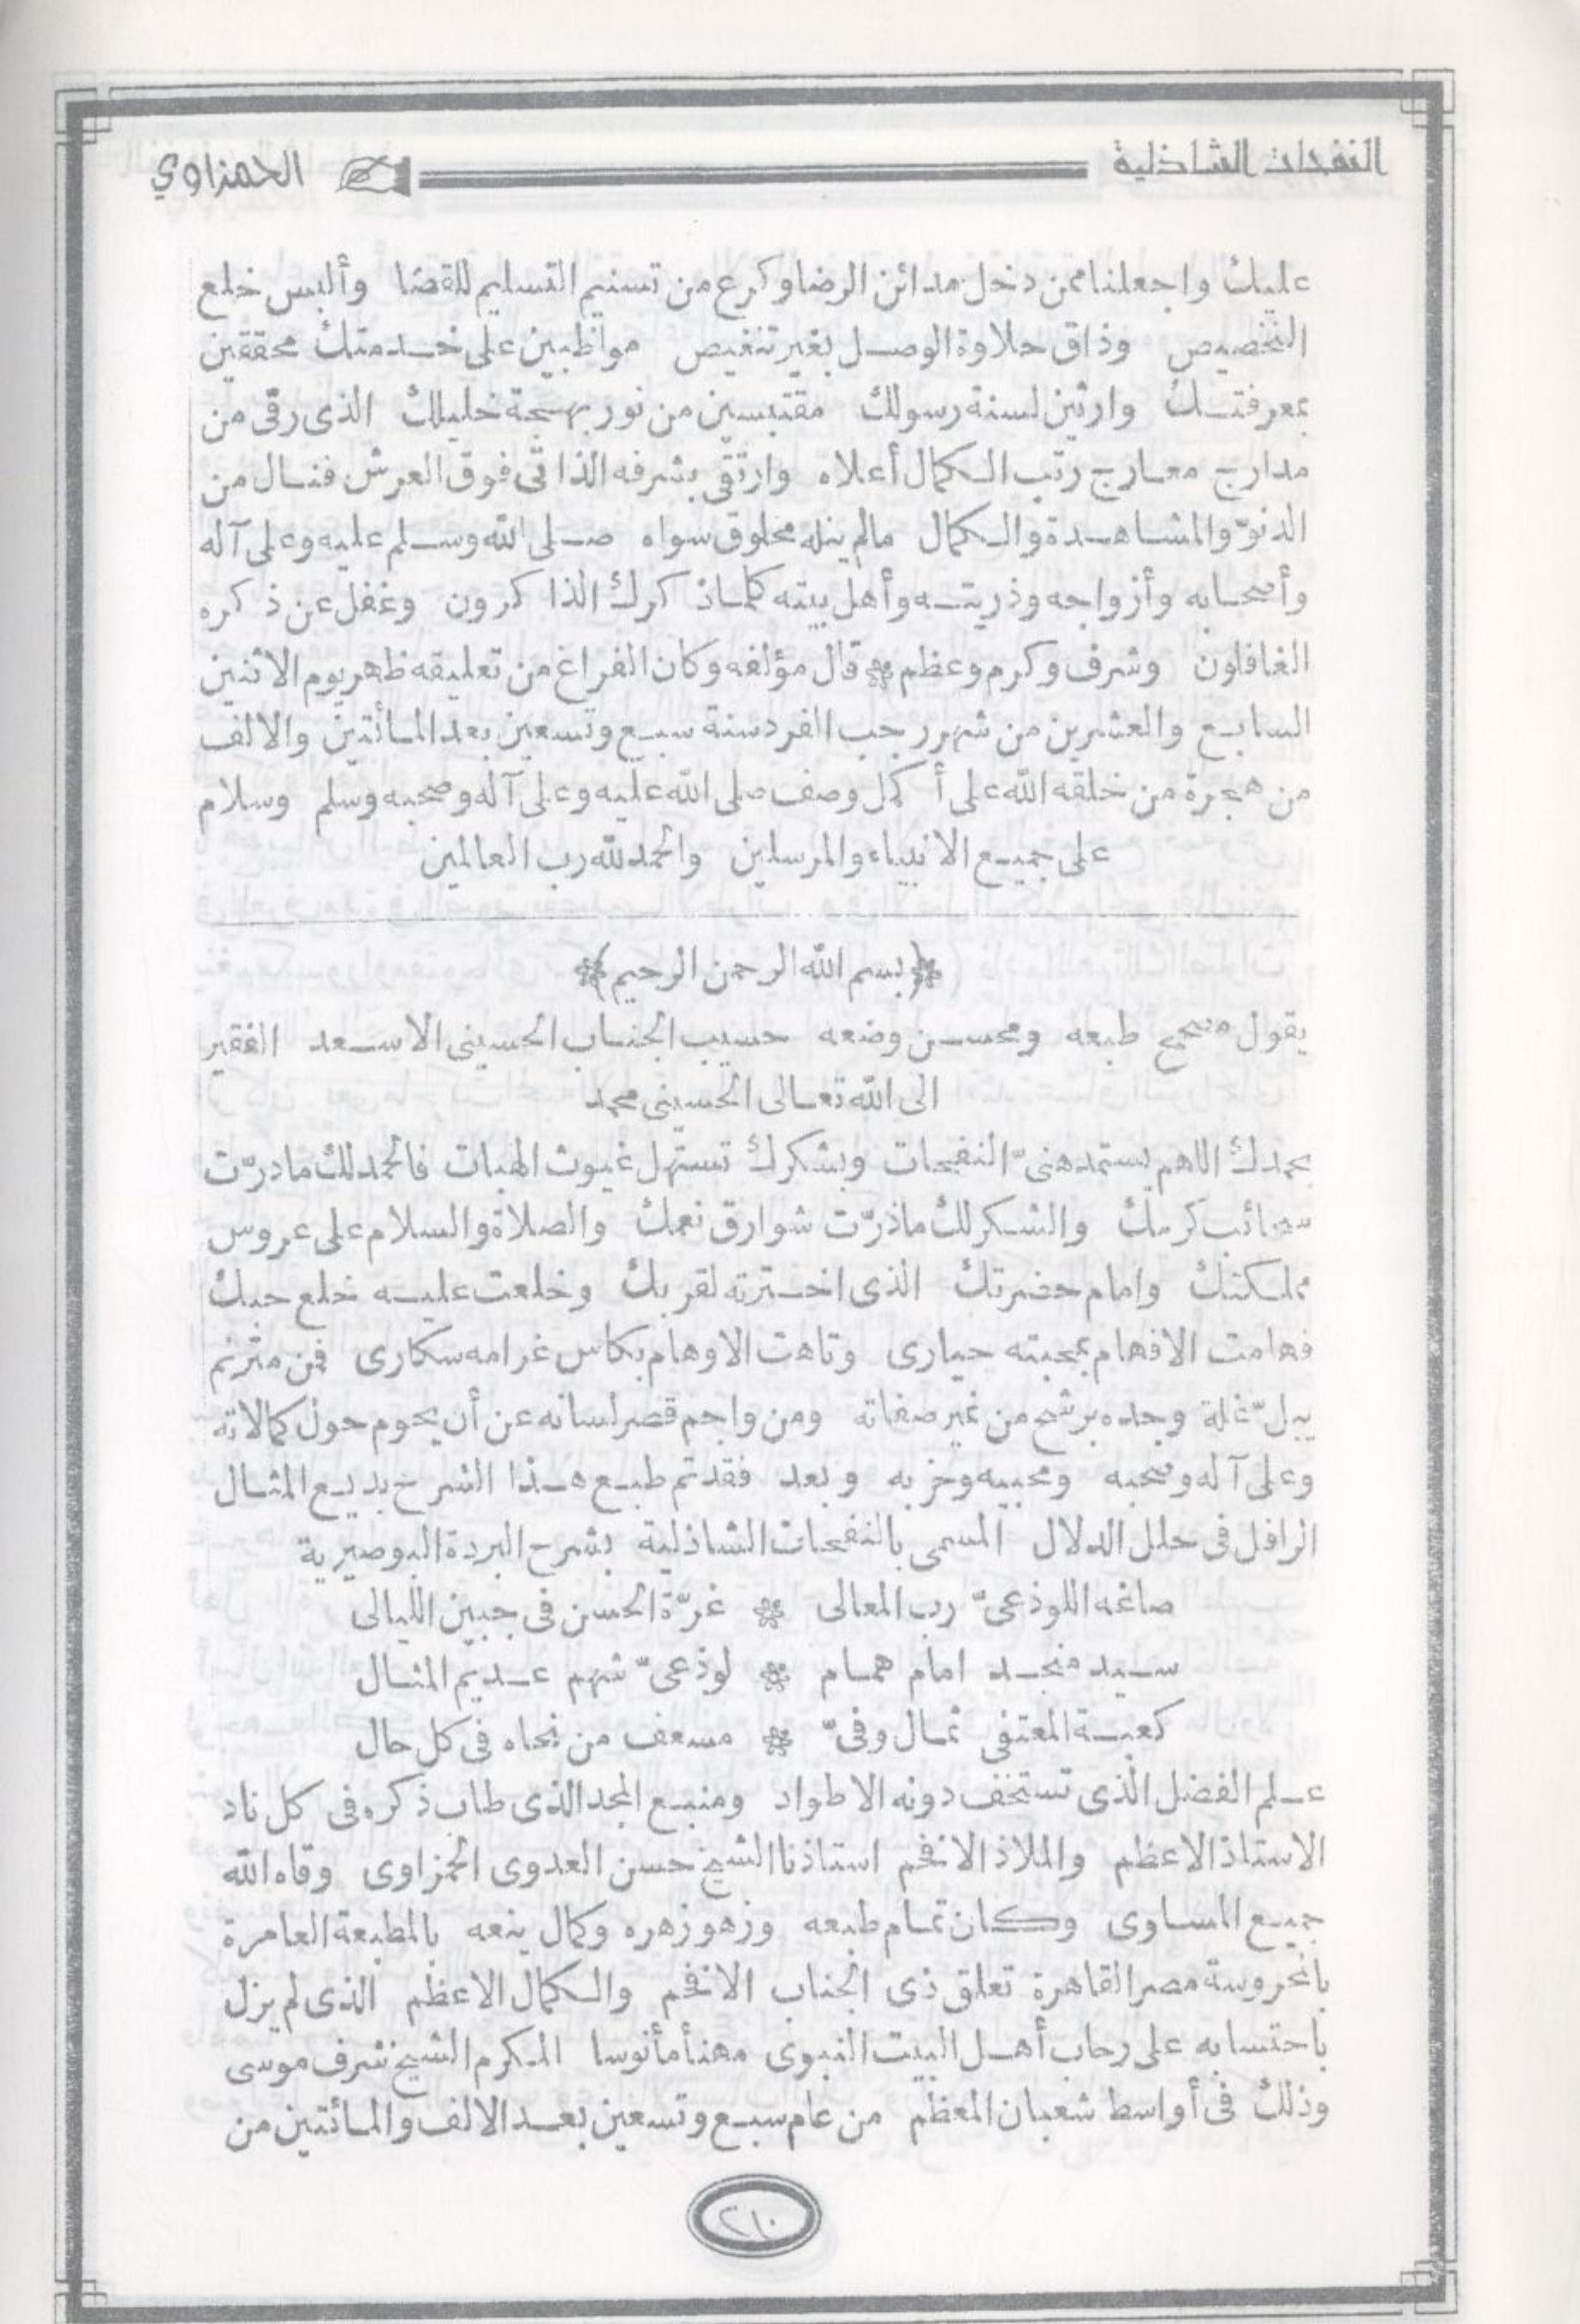 النفحات الشاذلية
الحمزاوي
عليك واجعلنا ممن دخل مدائن الرضا وكرع من تسنيم التسليم للقضا وألبس خلع
التخصيص وذاق حلاوة الوصل بغير تنغيص مواظبين على خدمتك محققين
بمعرفتك وارثين لسنة رسولك مقتبسين من نور بهجة خليلك الذى رقى من
مدارج معارج رتب الكمال أعلاه وارتقى بشرفه الذاتى فوق العرش فنال من
الدنوّ والمشاهدة والكمال مالم ينله مخلوق سواه صلى الله وسلم عليه وعلى آله
وأصحابه وأزواجه وذريته وأهل بيته كلما ذكرك الذاكرون وغفل عن ذكره
الغافلون وشرف وكرم وعظم * قال مؤلفه وكان الفراغ من تعليقه ظهر يوم الاثنين
السابع والعشرين من شهر رجب الفرد سنة سبع وتسعين بعد المائتين والالف
من هجرة من خلقه الله على أكمل وصف صلى الله عليه وعلى آله وصحبه وسلم وسلام
على جميع الانبياء والمرسلين والحمد لله رب العالمين
﴿بسم الله الرحمن الرحيم﴾
يقول مصحح طبعه ومحسن وضعه حسيب الجناب الحسينى الاسعد الفقير
الى الله تعالى الحسينى محمد
بحمدك اللهم يستمد هنىّ النفحات وبشكرك تستهل غيوث الهبات فالحمد لك مادرّت
سحائب كرمك والشكر لك ماذرّت شوارق نعمك والصلاة والسلام على عروس
مملكتك وامام حضرتك الذى اخترته لقربك وخلعت عليه خلع حبك
فهامت الافهام بمحبته حيارى وتاهت الاوهام بكاس غرامه سكارى فمن مترنم
يبلّ غلة وجده برشح من نمير صفاته ومن واجم قصر لسانه عن أن يحوم حول كمالاته
وعلى آله وصحبه ومحبيه وحزبه وبعد فقد تم طبع هذا الشرح بديع المثال
الرافل فى حلل الدلال المسمى بالنفحات الشاذلية بشرح البردة البوصيرية
صاغه اللوذعىّ رب المعالى * غرّة الحسن فى جبين الليالى
سيد منجد امام همام * لوذعىّ شهم عديم المثال
كعبة المعتفى ثمال وفىّ * مسعف من نحاه فى كل حال
علم الفضل الذى تستخف دونه الاطواد ومنبع المجد الذى طاب ذكره فى كل ناد
الاستاذ الاعظم والملاذ الافخم استاذنا الشيخ حسن العدوى الحمزاوى وقاه الله
جميع المساوى وكان تمام طبعه وزهو زهره وكمال ينعه بالمطبعة العامرة
بالمحروسة مصر القاهرة تعلق ذى الجناب الافخم والكمال الاعظم الذى لم يزل
باحتسابه على رحاب أهل البيت النبوى مهنأ مأنوسا المكرم الشيخ شرف موسى
وذلك فى أواسط شعبان المعظم من عام سبع وتسعين بعد الالف والمائتين من
٢١٠